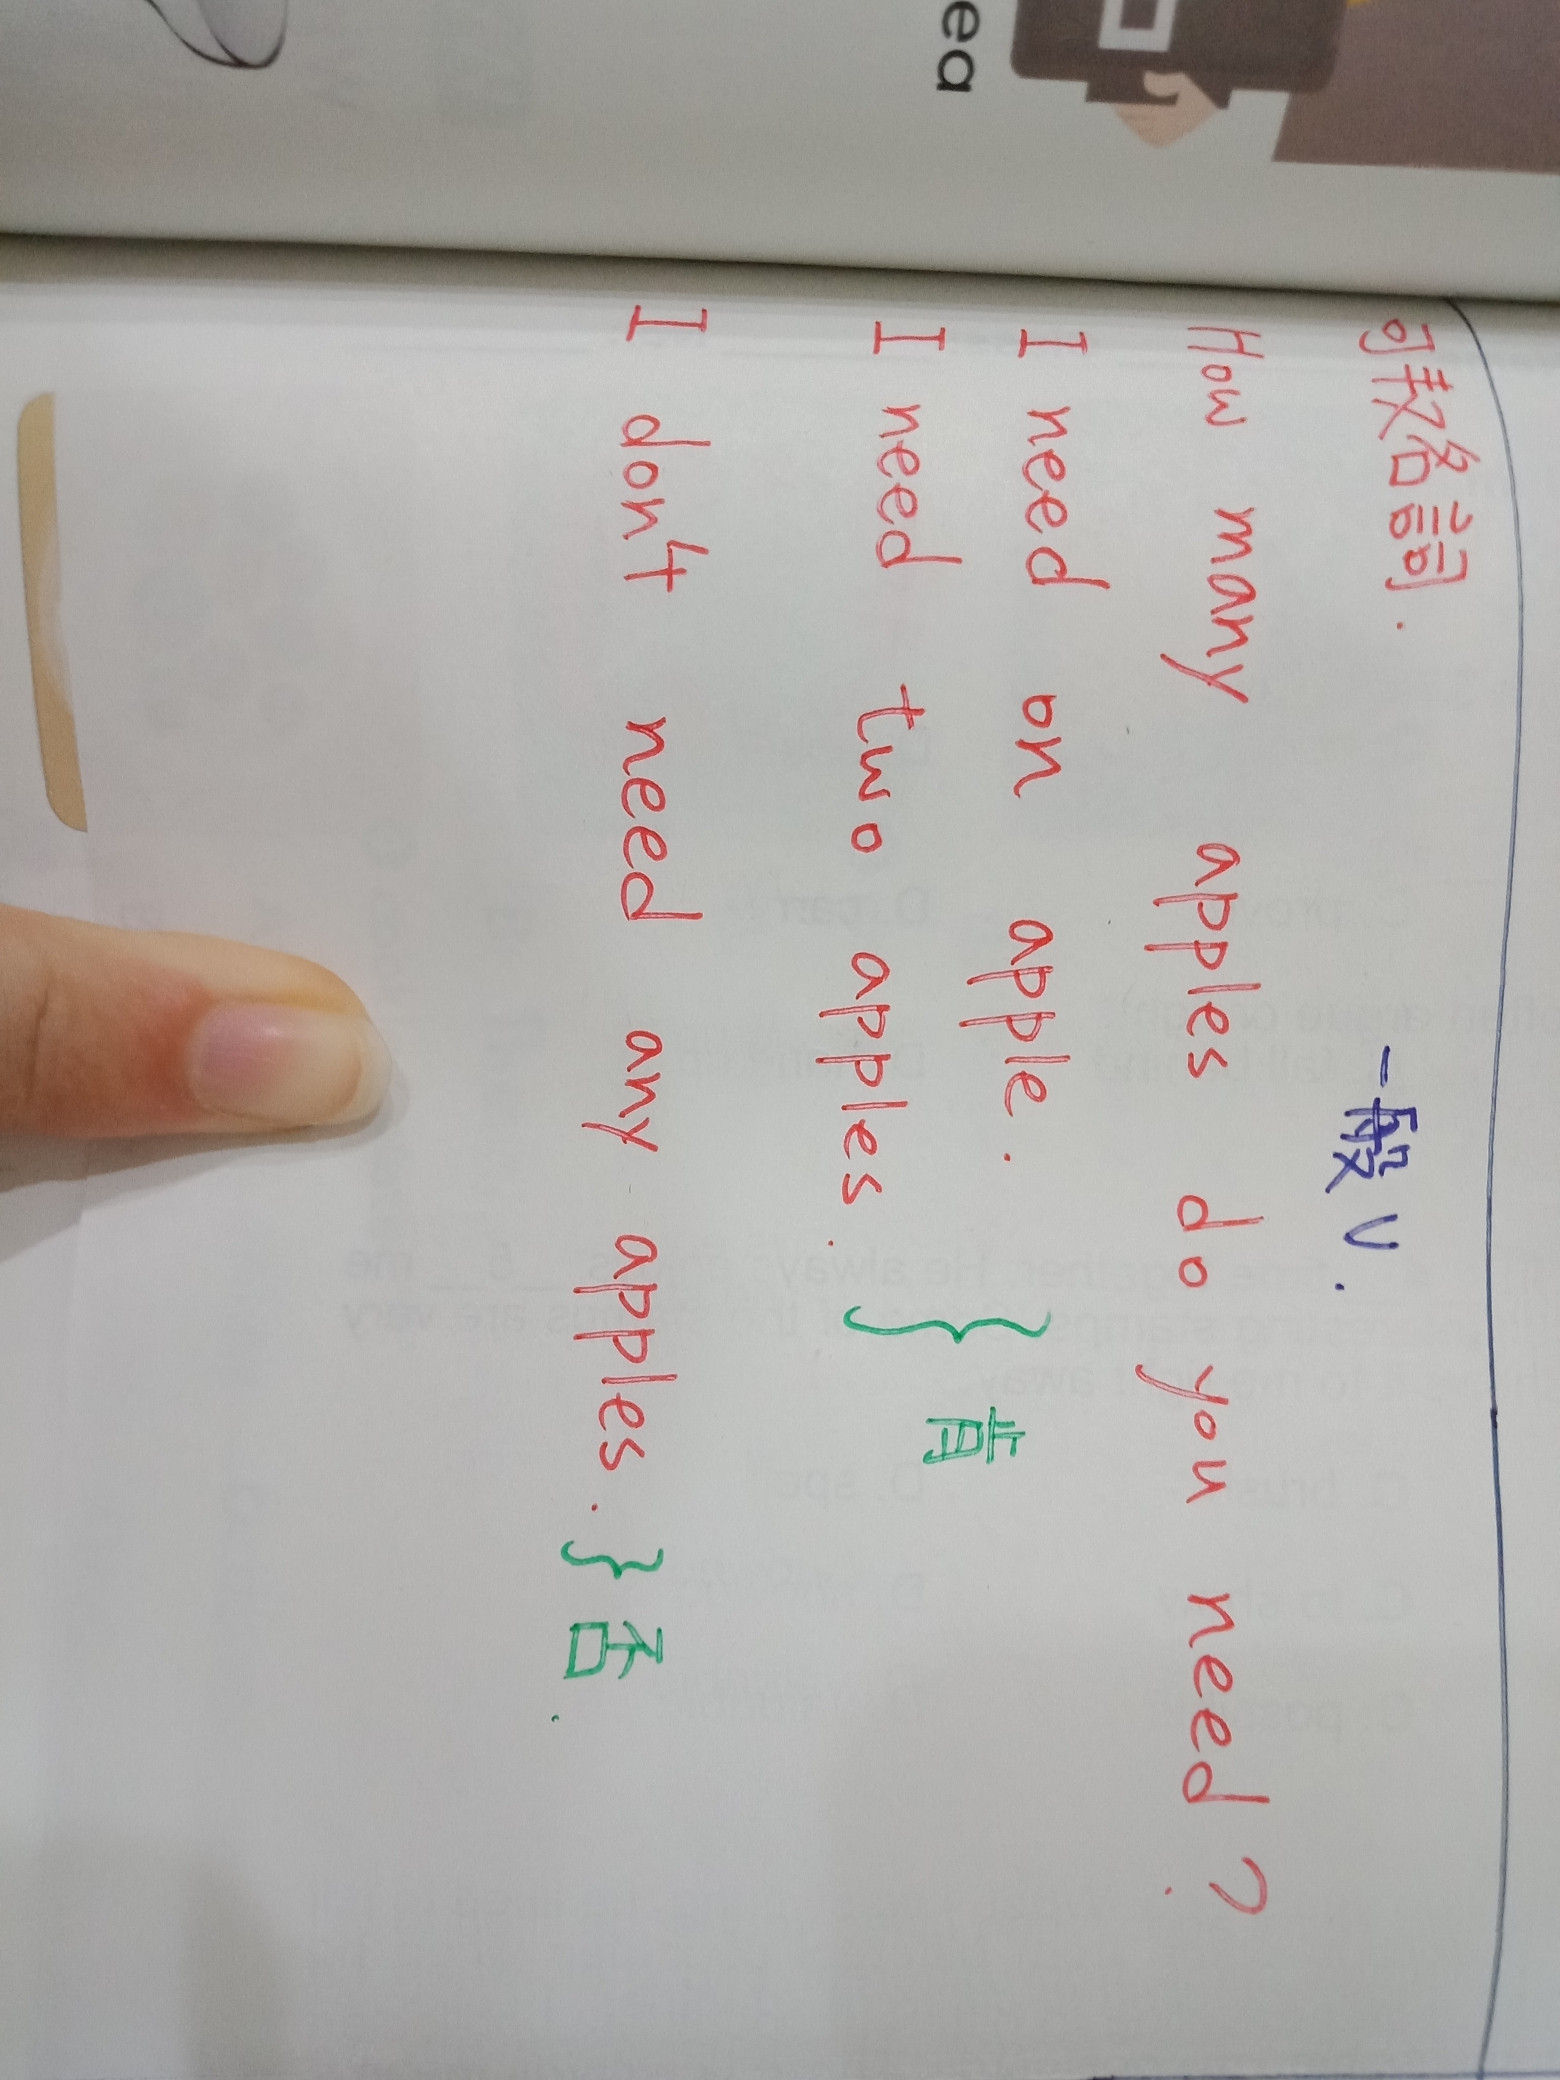 ea
可数名詞.
一般V.
How many apples do you need?
I need on apple.
I need two apples. } 肯
I don't need any apples. } 否.